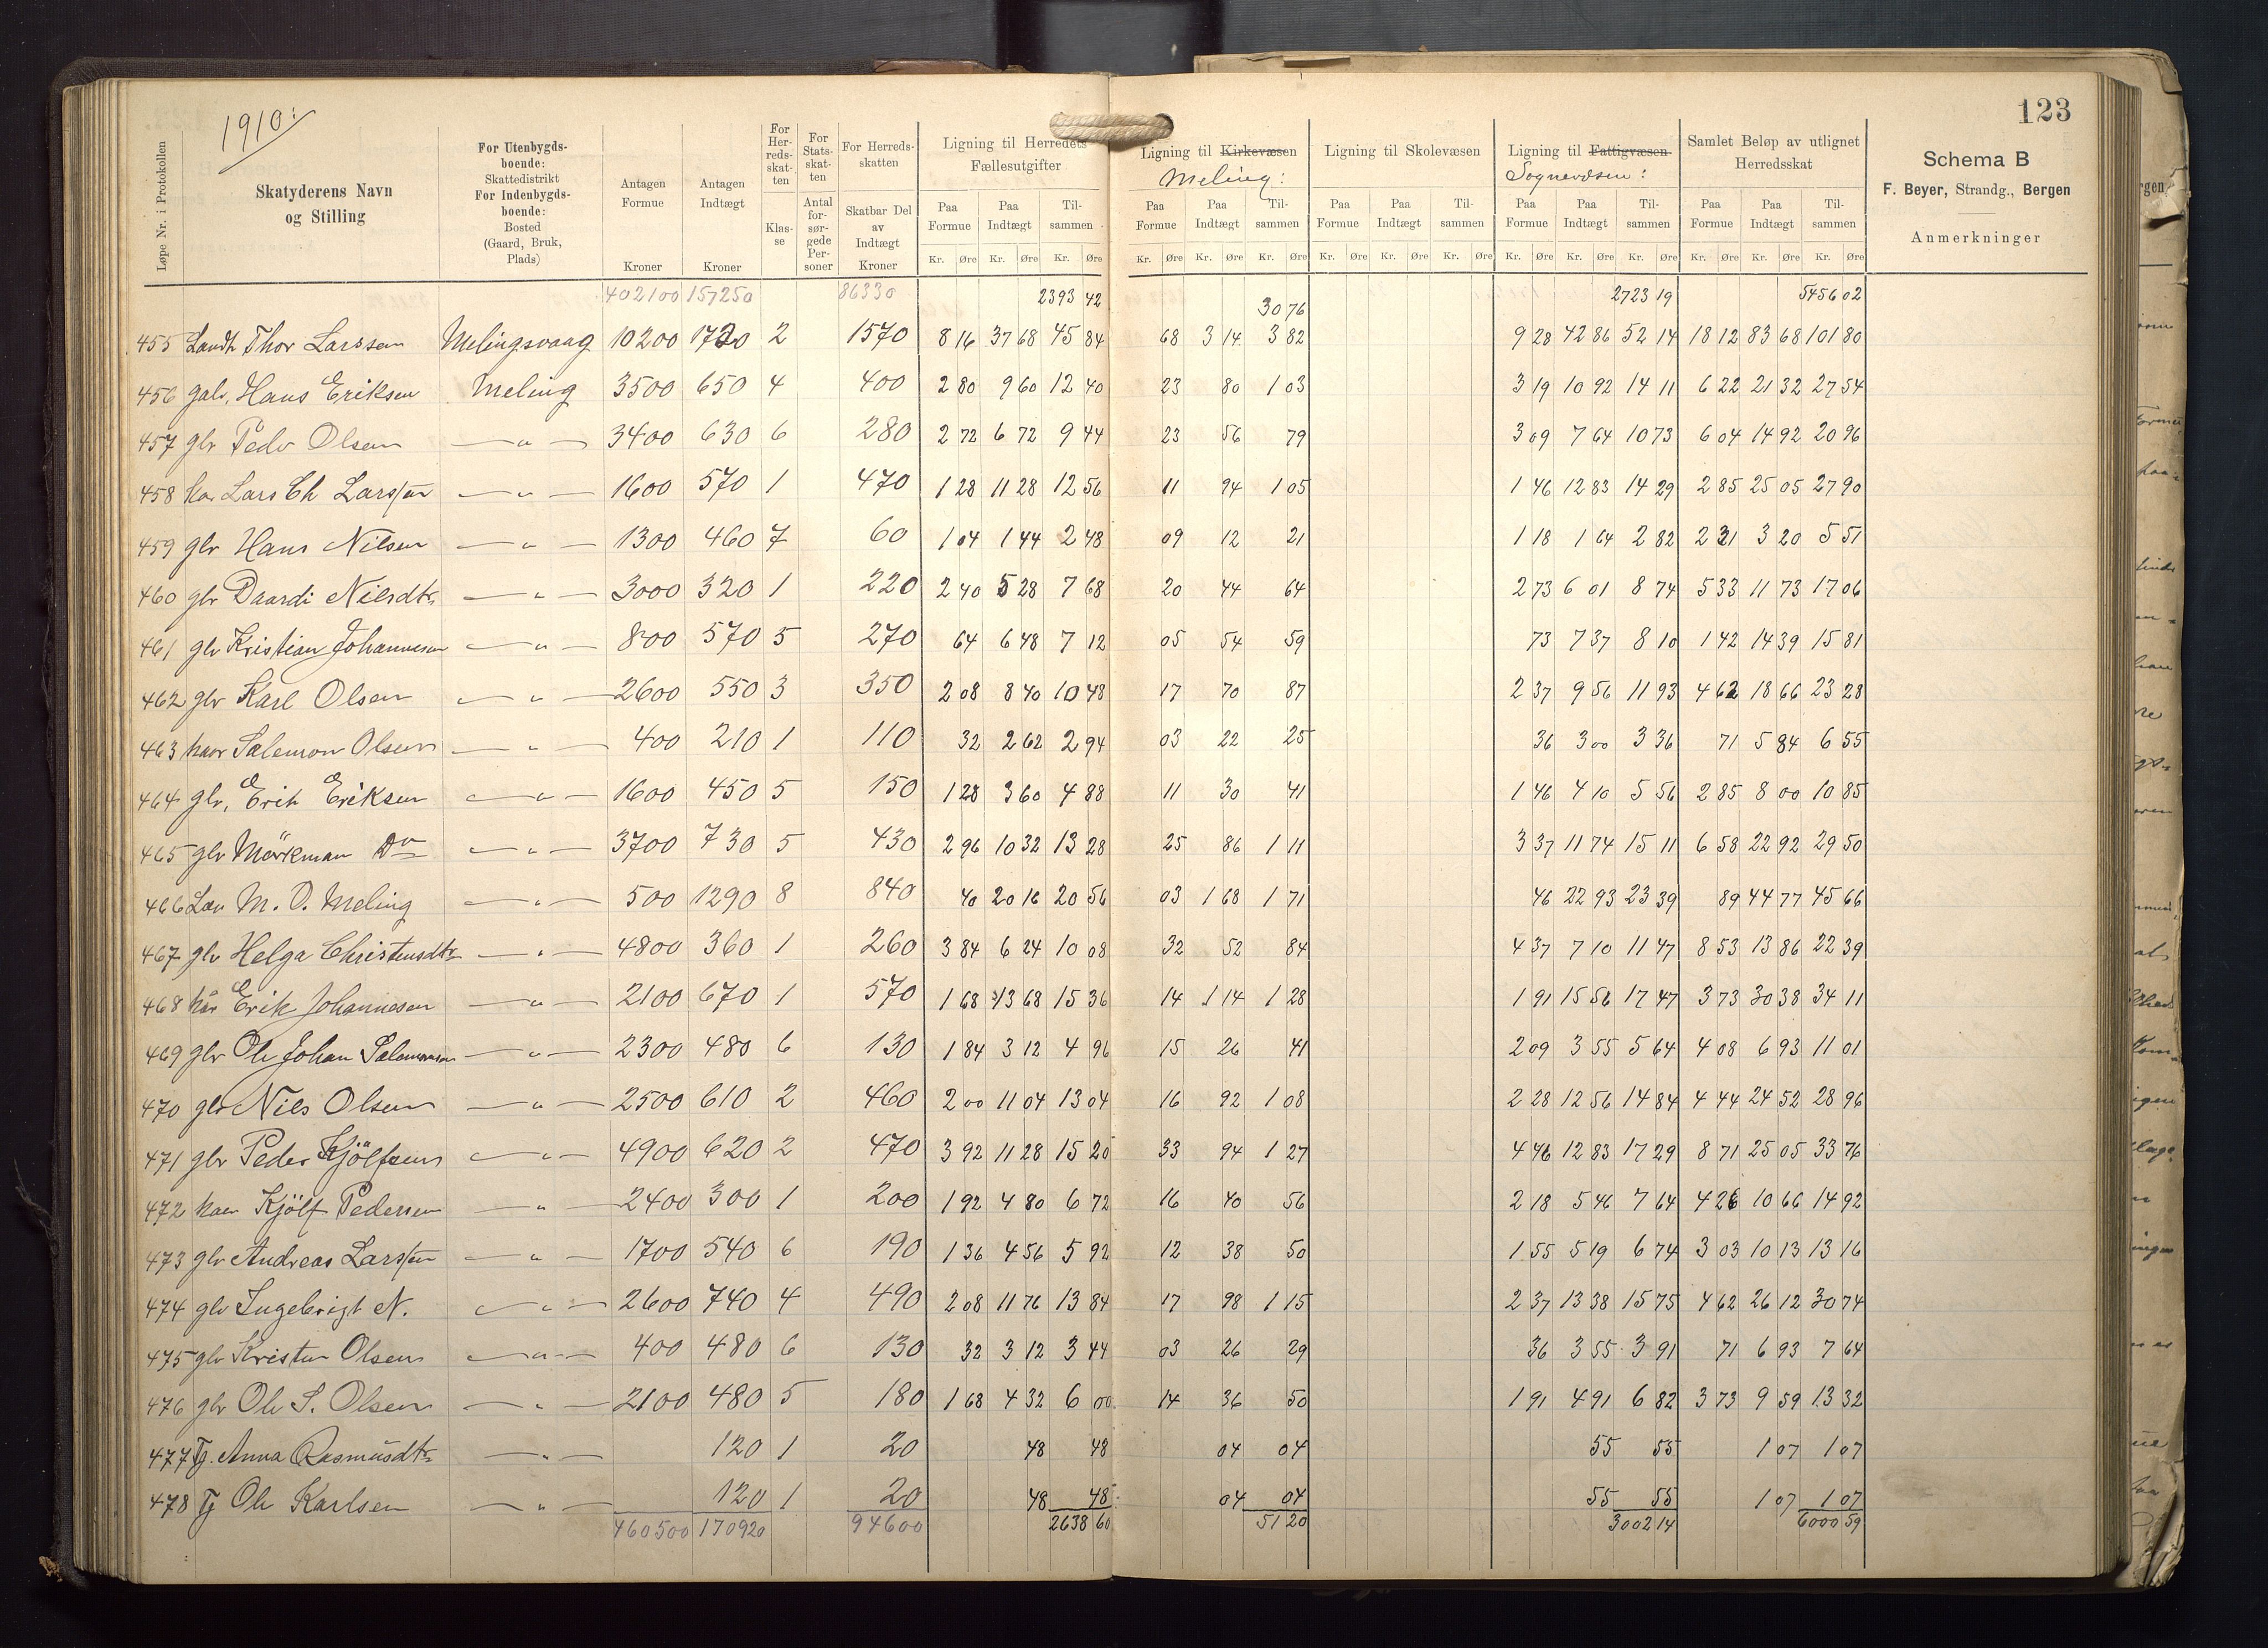 1910:
123
Løpe Nr. i Protokollen
Skatyderens Navn og Stilling
For Utenbygds-boende: Skattedistrikt For Indenbygds-boende: Bosted (Gaard, Bruk, Plads)
Antagen Formue Kroner
Antagen Indtægt Kroner
For Herreds-skatten Klas-se
For Stats-skat-ten Antal for-sør-gede Per-soner
For Herreds-skatten Skatbar Del av Indtægt Kroner
Ligning til Herredets Fællesutgifter
Ligning til Kirkevæsen Meling:
Ligning til Skolevæsen
Ligning til Fattigvæsen Sognevæsen:
Samlet Beløp av utlignet Herredsskat
Schema B
F. Beyer, Strandg., Bergen
Anmerkninger
Paa Formue Paa Indtægt Til-sammen Paa Formue Paa Indtægt Til-sammen Paa Formue Paa Indtægt Til-sammen Paa Formue Paa Indtægt Til-sammen Paa Formue Paa Indtægt Til-sammen
Kr. Øre Kr. Øre Kr. Øre Kr. Øre Kr. Øre Kr. Øre Kr. Øre Kr. Øre Kr. Øre Kr. Øre Kr. Øre Kr. Øre Kr. Øre Kr. Øre Kr. Øre
402100 157250 86330 2393 42 30 76 2723 19 5456 02
455 Landh Thor Larssen Melingsvaag 10200 1720 2 1570 8 16 37 68 45 84 68 3 14 3 82 9 28 42 86 52 14 18 12 83 68 101 80
456 galv. Hans Eriksen Meling 3500 650 4 400 2 80 9 60 12 40 23 80 1 03 3 19 10 92 14 11 6 22 21 32 27 54
457 glv Peder Olsen — " — 3400 630 6 280 2 72 6 72 9 44 23 56 79 3 09 7 64 10 73 6 04 14 92 20 96
458 kar Lars Ch Larssen — " — 1600 570 1 470 1 28 11 28 12 56 11 94 1 05 1 46 12 83 14 29 2 85 25 05 27 90
459 glv Hans Nilsen — " — 1300 460 7 60 1 04 1 44 2 48 09 12 21 1 18 1 64 2 82 2 31 3 20 5 51
460 glv Daardi Nilsdtr — " — 3000 320 1 220 2 40 5 28 7 68 20 44 64 2 73 6 01 8 74 5 33 11 73 17 06
461 glv Kristian Johannesen — " — 800 570 5 270 64 6 48 7 12 05 54 59 73 7 37 8 10 1 42 14 39 15 81
462 glv Karl Olsen — " — 2600 550 3 350 2 08 8 40 10 48 17 70 87 2 37 9 56 11 93 4 62 18 66 23 28
463 kaar Salemon Olsen — " — 400 210 1 110 32 2 62 2 94 03 22 25 36 3 00 3 36 71 5 84 6 55
464 glv. Erik Eriksen — " — 1600 450 5 150 1 28 3 60 4 88 11 30 41 1 46 4 10 5 56 2 85 8 00 10 85
465 glv Mörkman Do — " — 3700 730 5 430 2 96 10 32 13 28 25 86 1 11 3 37 11 74 15 11 6 58 22 92 29 50
466 Lær M. O. Meling — " — 500 1290 8 840 40 20 16 20 56 03 1 68 1 71 46 22 93 23 39 89 44 77 45 66
467 glv Helga Christensdtr — " — 4800 360 1 260 3 84 6 24 10 08 32 52 84 4 37 7 10 11 47 8 53 13 86 22 39
468 kår Erik Johannesen — " — 2100 670 1 570 1 68 13 68 15 36 14 1 14 1 28 1 91 15 56 17 47 3 73 30 38 34 11
469 glv Ole Johan Salomonsen — " — 2300 480 6 130 1 84 3 12 4 96 15 26 41 2 09 3 55 5 64 4 08 6 93 11 01
470 glv Nils Olsen — " — 2500 610 2 460 2 00 11 04 13 04 16 92 1 08 2 28 12 56 14 84 4 44 24 52 28 96
471 glv Peder Kjölfsen — " — 4900 620 2 470 3 92 11 28 15 20 33 94 1 27 4 46 12 83 17 29 8 71 25 05 33 76
472 kaar Kjölf Pedersen — " — 2400 300 1 200 1 92 4 80 6 72 16 40 56 2 18 5 46 7 64 4 26 10 66 14 92
473 glv Andreas Larssen — " — 1700 540 6 190 1 36 4 56 5 92 12 38 50 1 55 5 19 6 74 3 03 10 13 13 16
474 glv Ingebrigt N. — " — 2600 740 4 490 2 08 11 76 13 84 17 98 1 15 2 37 13 38 15 75 4 62 26 12 30 74
475 glv Kristen Olsen — " — 400 480 6 130 32 3 12 3 44 03 26 29 36 3 55 3 91 71 6 93 7 64
476 glv Ole S. Olsen — " — 2100 480 5 180 1 68 4 32 6 00 14 36 50 1 91 4 91 6 82 3 73 9 59 13 32
477 Tj. Anna Rasmusdtr — " — 120 1 20 48 48 04 04 55 55 1 07 1 07
478 Tj Ole Karlsen — " — 120 1 20 48 48 04 04 55 55 1 07 1 07
460500 170920 94600 2638 60 51 20 3002 14 6000 59